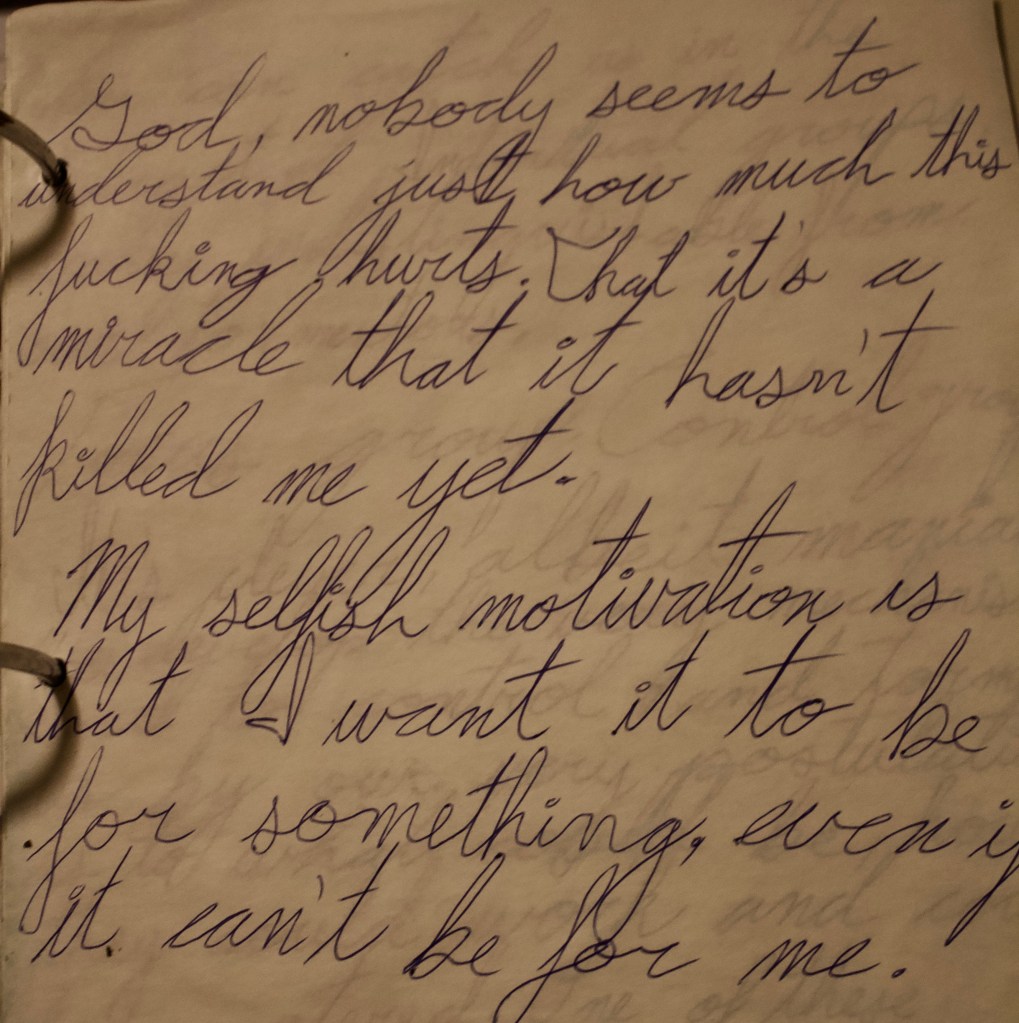 God, nobody seems to
understand just how much this
fucking hurts. That it's a
miracle that it hasn't
killed me yet.
My selfish motivation is
that I want it to be
for something, even if
it can't be for me.